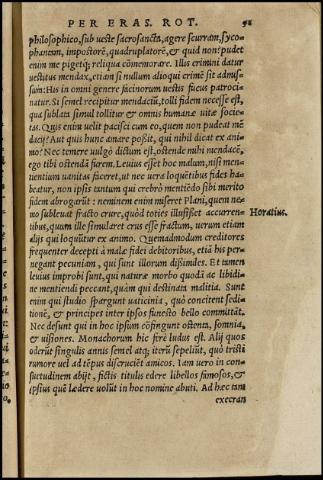 PER ERAS. ROT. 91
philosophico, sub veste sacrosancta, agere scurram, syco-
phantam, impostorē, quadruplatorē, & quid non? pudet
enim me pigetq; reliqua cōmemorare. Illis crimini datur
vestitus mendax, etiam si nullum alioqui crimē sit admis-
sum: His in omni genere facinorum vestis fucus patroci-
natur. Si semel recipitur mendaciū, tolli fidem necesse est,
qua sublata simul tollitur & omnis humanæ vitæ socie-
tas. Quis enim velit pacisci cum eo, quem non pudeat mē
dacij? Aut quis hunc amare possit, qui nihil dicat ex ani-
mo? Nec temere vulgò dictum est, ostende mihi mendacē,
ego tibi ostendā furem. Leuius esset hoc malum, nisi men-
tientium vanitas faceret, ut nec vera loquētibus fides ha-
beatur, non ipsis tantum qui crebrò mentiēdo sibi merito
fidem abrogarūt: neminem enim miseret Plani, quem ne-
mo subleuat fracto crure, quòd toties illusisset accurren-
tibus, quum ille simularet crus esse fractum, verum etiam
alijs qui loquūtur ex animo. Quemadmodum creditores
frequenter decepti à malæ fidei debitoribus, etiā his per-
negant pecuniam, qui sunt illorum dissimiles. Et tamen
leuius improbi sunt, qui naturæ morbo quodā ac libidi-
ne mentiendi peccant, quàm qui destinata malitia. Sunt
enim qui studio spargunt vaticinia, quò concitent sedi-
tionē, & principes inter ipsos funesto bello committāt.
Nec desunt qui in hoc ipsum cōfingunt ostenta, somnia,
& visiones. Monachorum hic ferè ludus est. Alij quos
oderūt singulis annis semel atq; iterū sepeliūt, quò tristi
rumore vel ad tēpus discrucièt amicos. Iam vero in con-
suetudinem abijt, fictis titulis edere libellos famosos, &
ipsius quē lædere volūt in hoc nomine abuti. Ad hæc tam
execran
Horatius.